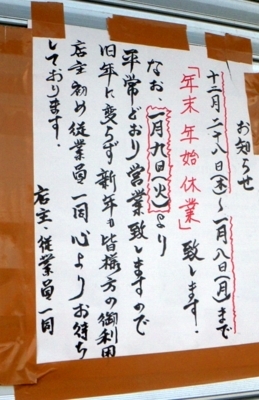 お知らせ
十二月二十八日(木)〜一月八日(月)まで
「年末年始休業」致します.
なお、一月九日(火)より
平常どおり営業致しますので
旧年に変らず新年も皆様方の御利用
店主初め従業員一同心よりお待ち
しております.
店主、従業員一同